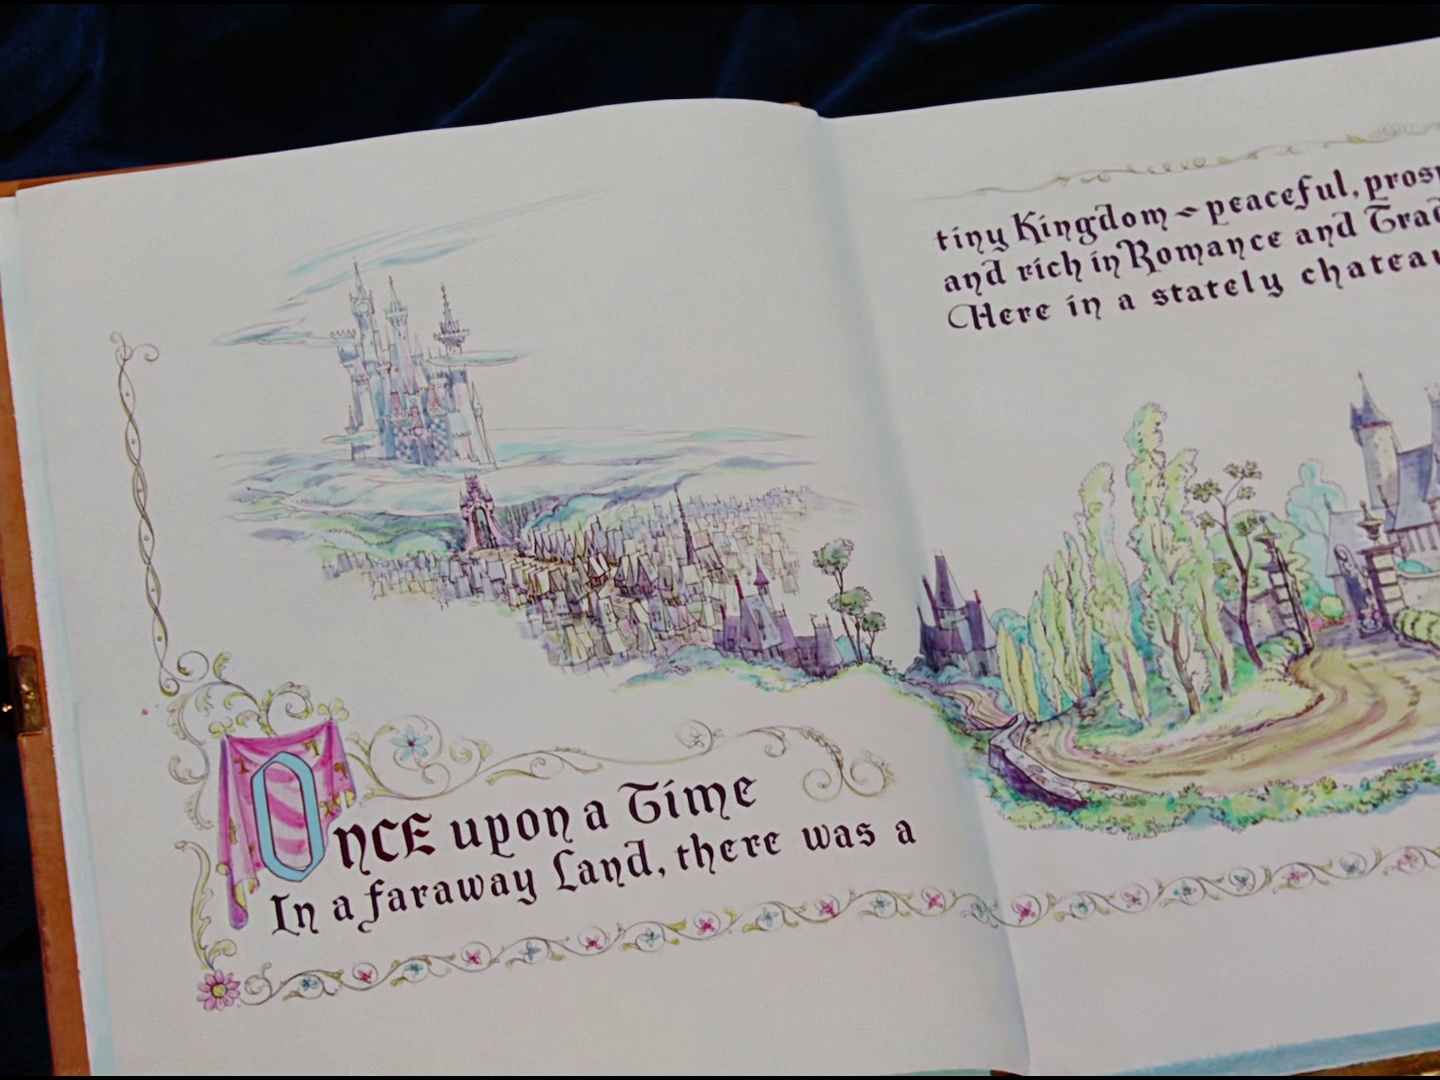 Once upon a Time
In a faraway Land, there was a
tiny Kingdom ~ peaceful,
and rich in Romance and
Here in a stately